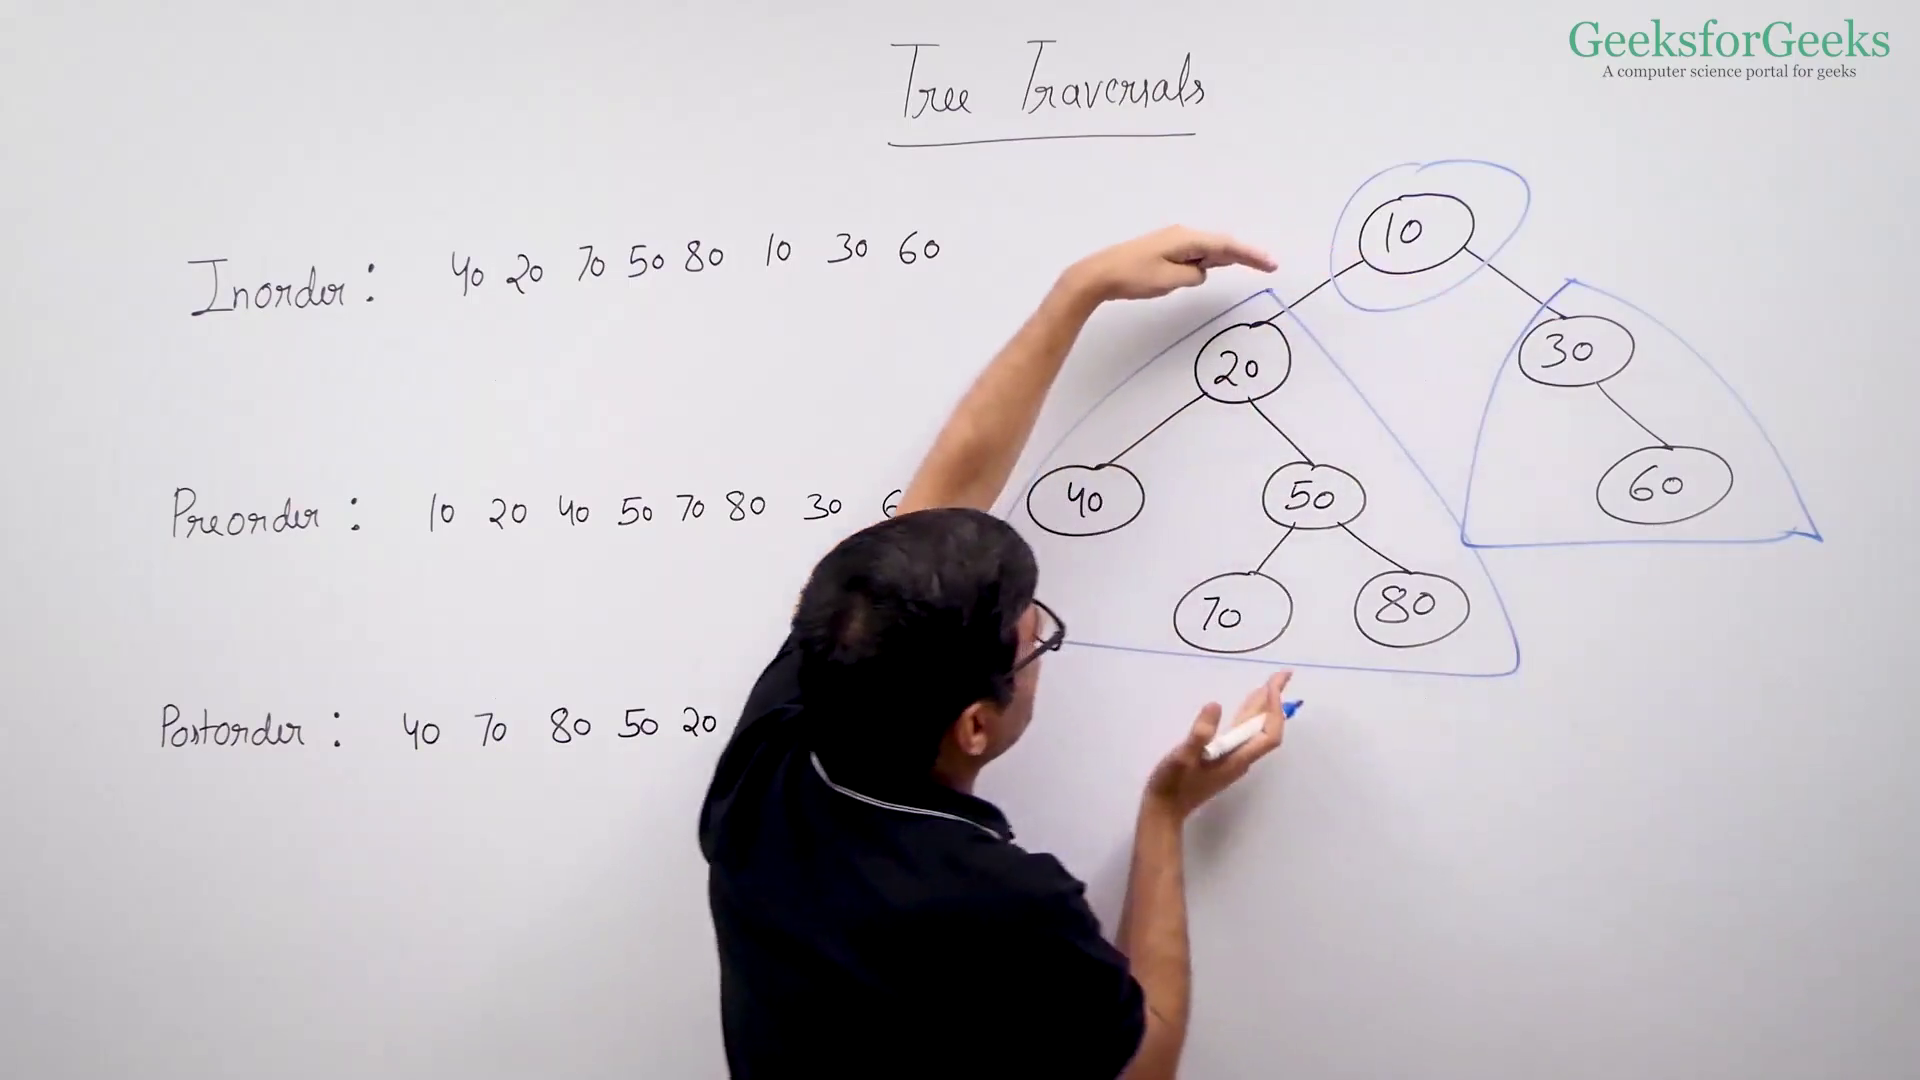 GeeksforGeeks
A computer science portal for geeks
Tree Traversals
Inorder : 40 20 70 50 80 10 30 60
Preorder : 10 20 40 50 70 80 30
Postorder : 40 70 80 50 20
10
20
30
40
50
60
70
80